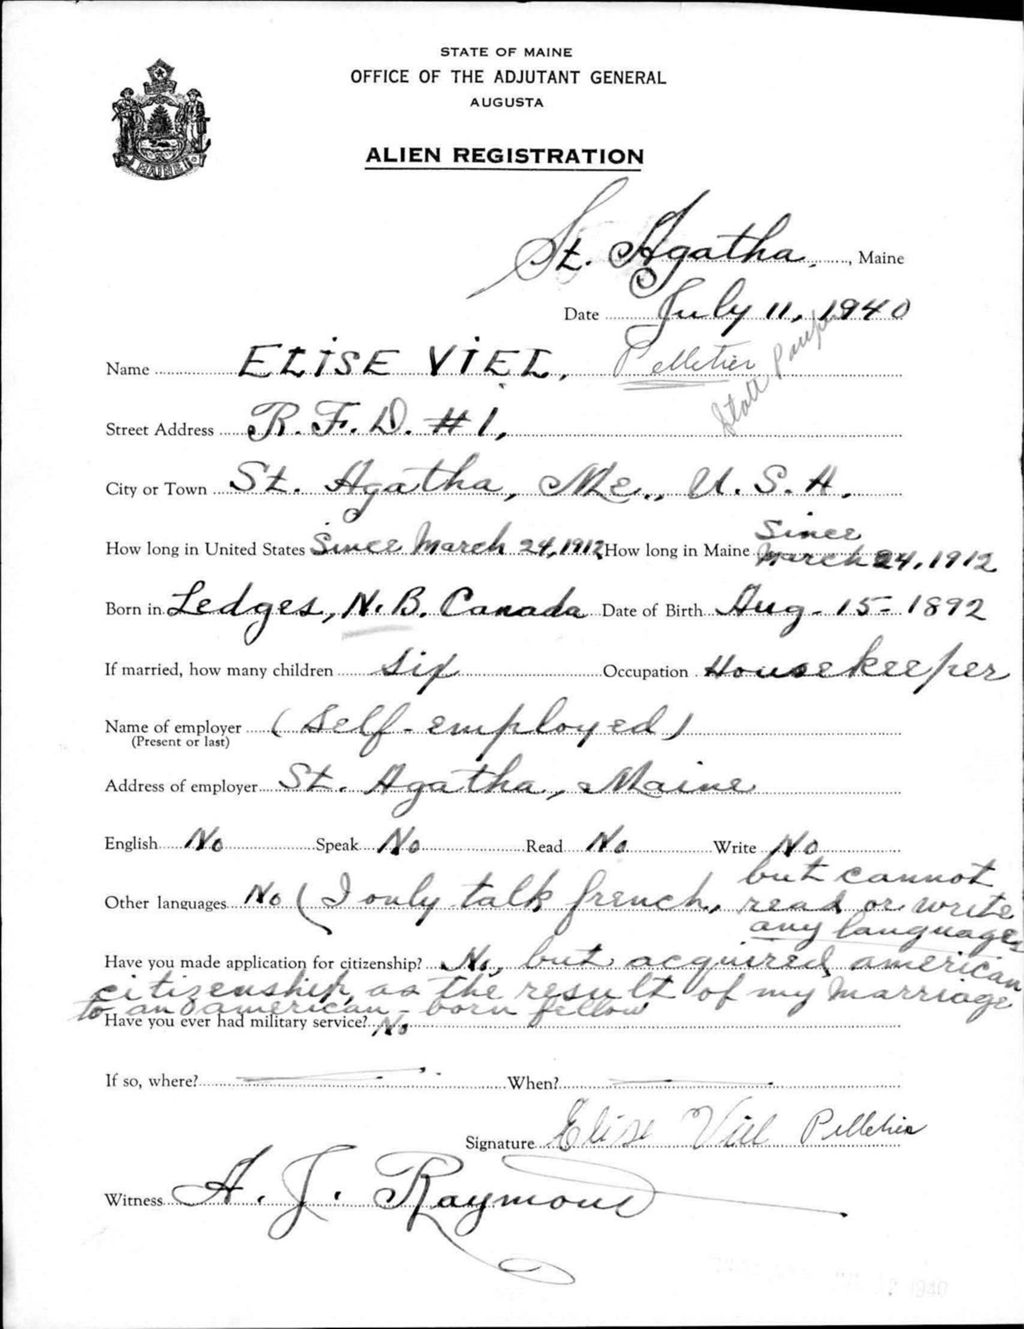 STATE OF MAINE
OFFICE OF THE ADJUTANT GENERAL
AUGUSTA
ALIEN REGISTRATION
MAINE
St. Agatha, Maine
Date July 11, 1940
Name ELISE VIEL, Pelletier
State Pauper
Street Address R.F.D. #1,
City or Town St. Agatha, Me., U.S.A.
How long in United States Since March 24, 1912 How long in Maine Since March 24, 1912
Born in Ledges, N.B. Canada Date of Birth Aug. 15- 1892
If married, how many children Six Occupation Housekeeper
Name of employer (Self-employed)
(Present or last)
Address of employer St. Agatha, Maine
English No Speak No Read No Write No
Other languages No (I only talk french, but cannot
read or write
any language
Have you made application for citizenship? No, but acquired american
citizenship, as the result of my marriage
to an american-born fellow
Have you ever had military service? No
If so, where? When?
Signature Elise Viel Pelletier
Witness A. J. Raymond
1940